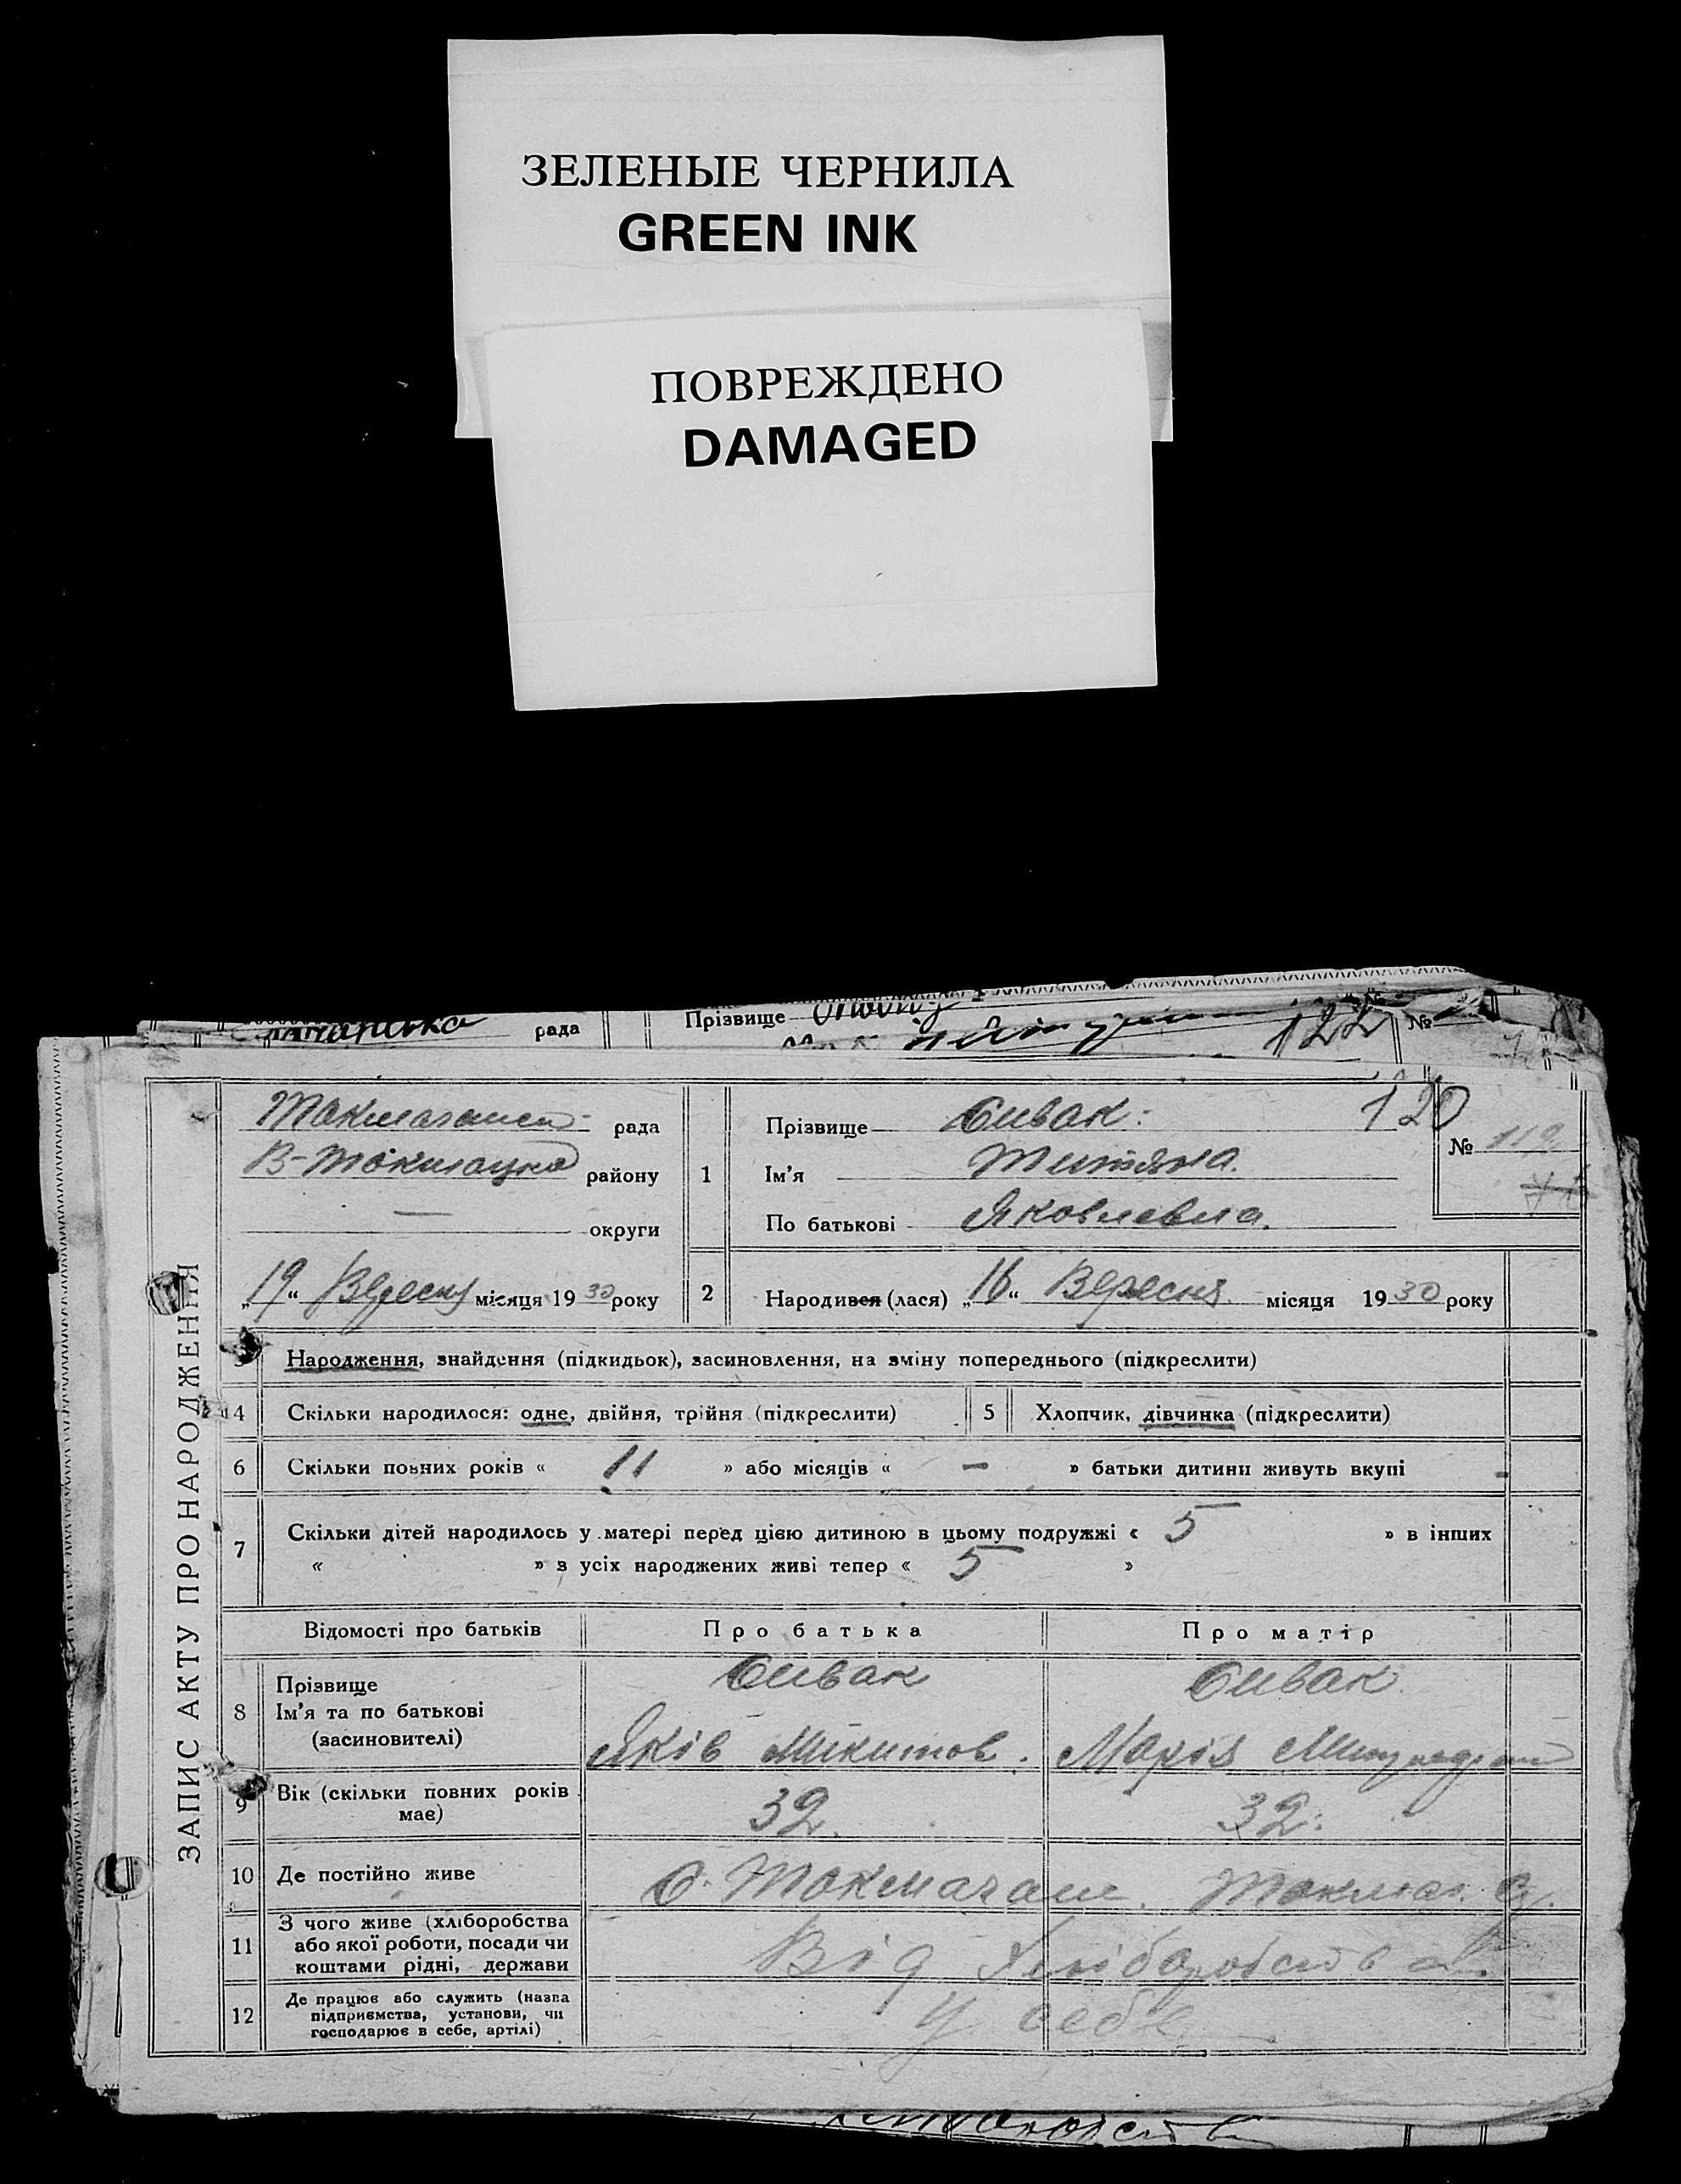 ЗЕЛЕНЫЕ ЧЕРНИЛА
GREEN INK
ПОВРЕЖДЕНО
DAMAGED
рада Прізвище 122 №
ЗАПИС АКТУ ПРО НАРОДЖЕННЯ
рада
В-Токмацька району
— округи
„19“ Вересня місяця 1930 року
1 Прізвище Сивак. 120
Ім'я Титяна.
По батькові Яковлевна.
№ 119
2 Народився (лася) „16“ Вересня місяця 1930 року
3 Народження, знайдення (підкидьок), засиновлення, на зміну попереднього (підкреслити)
4 Скільки народилося: одне, двійня, трійня (підкреслити) 5 Хлопчик, дівчинка (підкреслити)
6 Скільки повних років « 11 » або місяців « – » батьки дитини живуть вкупі
7 Скільки дітей народилось у матері перед цією дитиною в цьому подружжі « 5 » в інших
« » з усіх народжених живі тепер « 5 »
Відомості про батьків Про батька Про матір
8 Прізвище
Ім'я та по батькові
(засиновителі)
Сивак
Яків Микитов.
Сивак.
Марія
9 Вік (скільки повних років
має)
32. 32.
10 Де постійно живе С. Токмачан. Токмач. С.
11 З чого живе (хліборобства
або якої роботи, посади чи
коштами рідні, держави
Від Хліборобства.
12 Де працює або служить (назва
підприємства, установи, чи
господарює в себе, артілі)
У себе